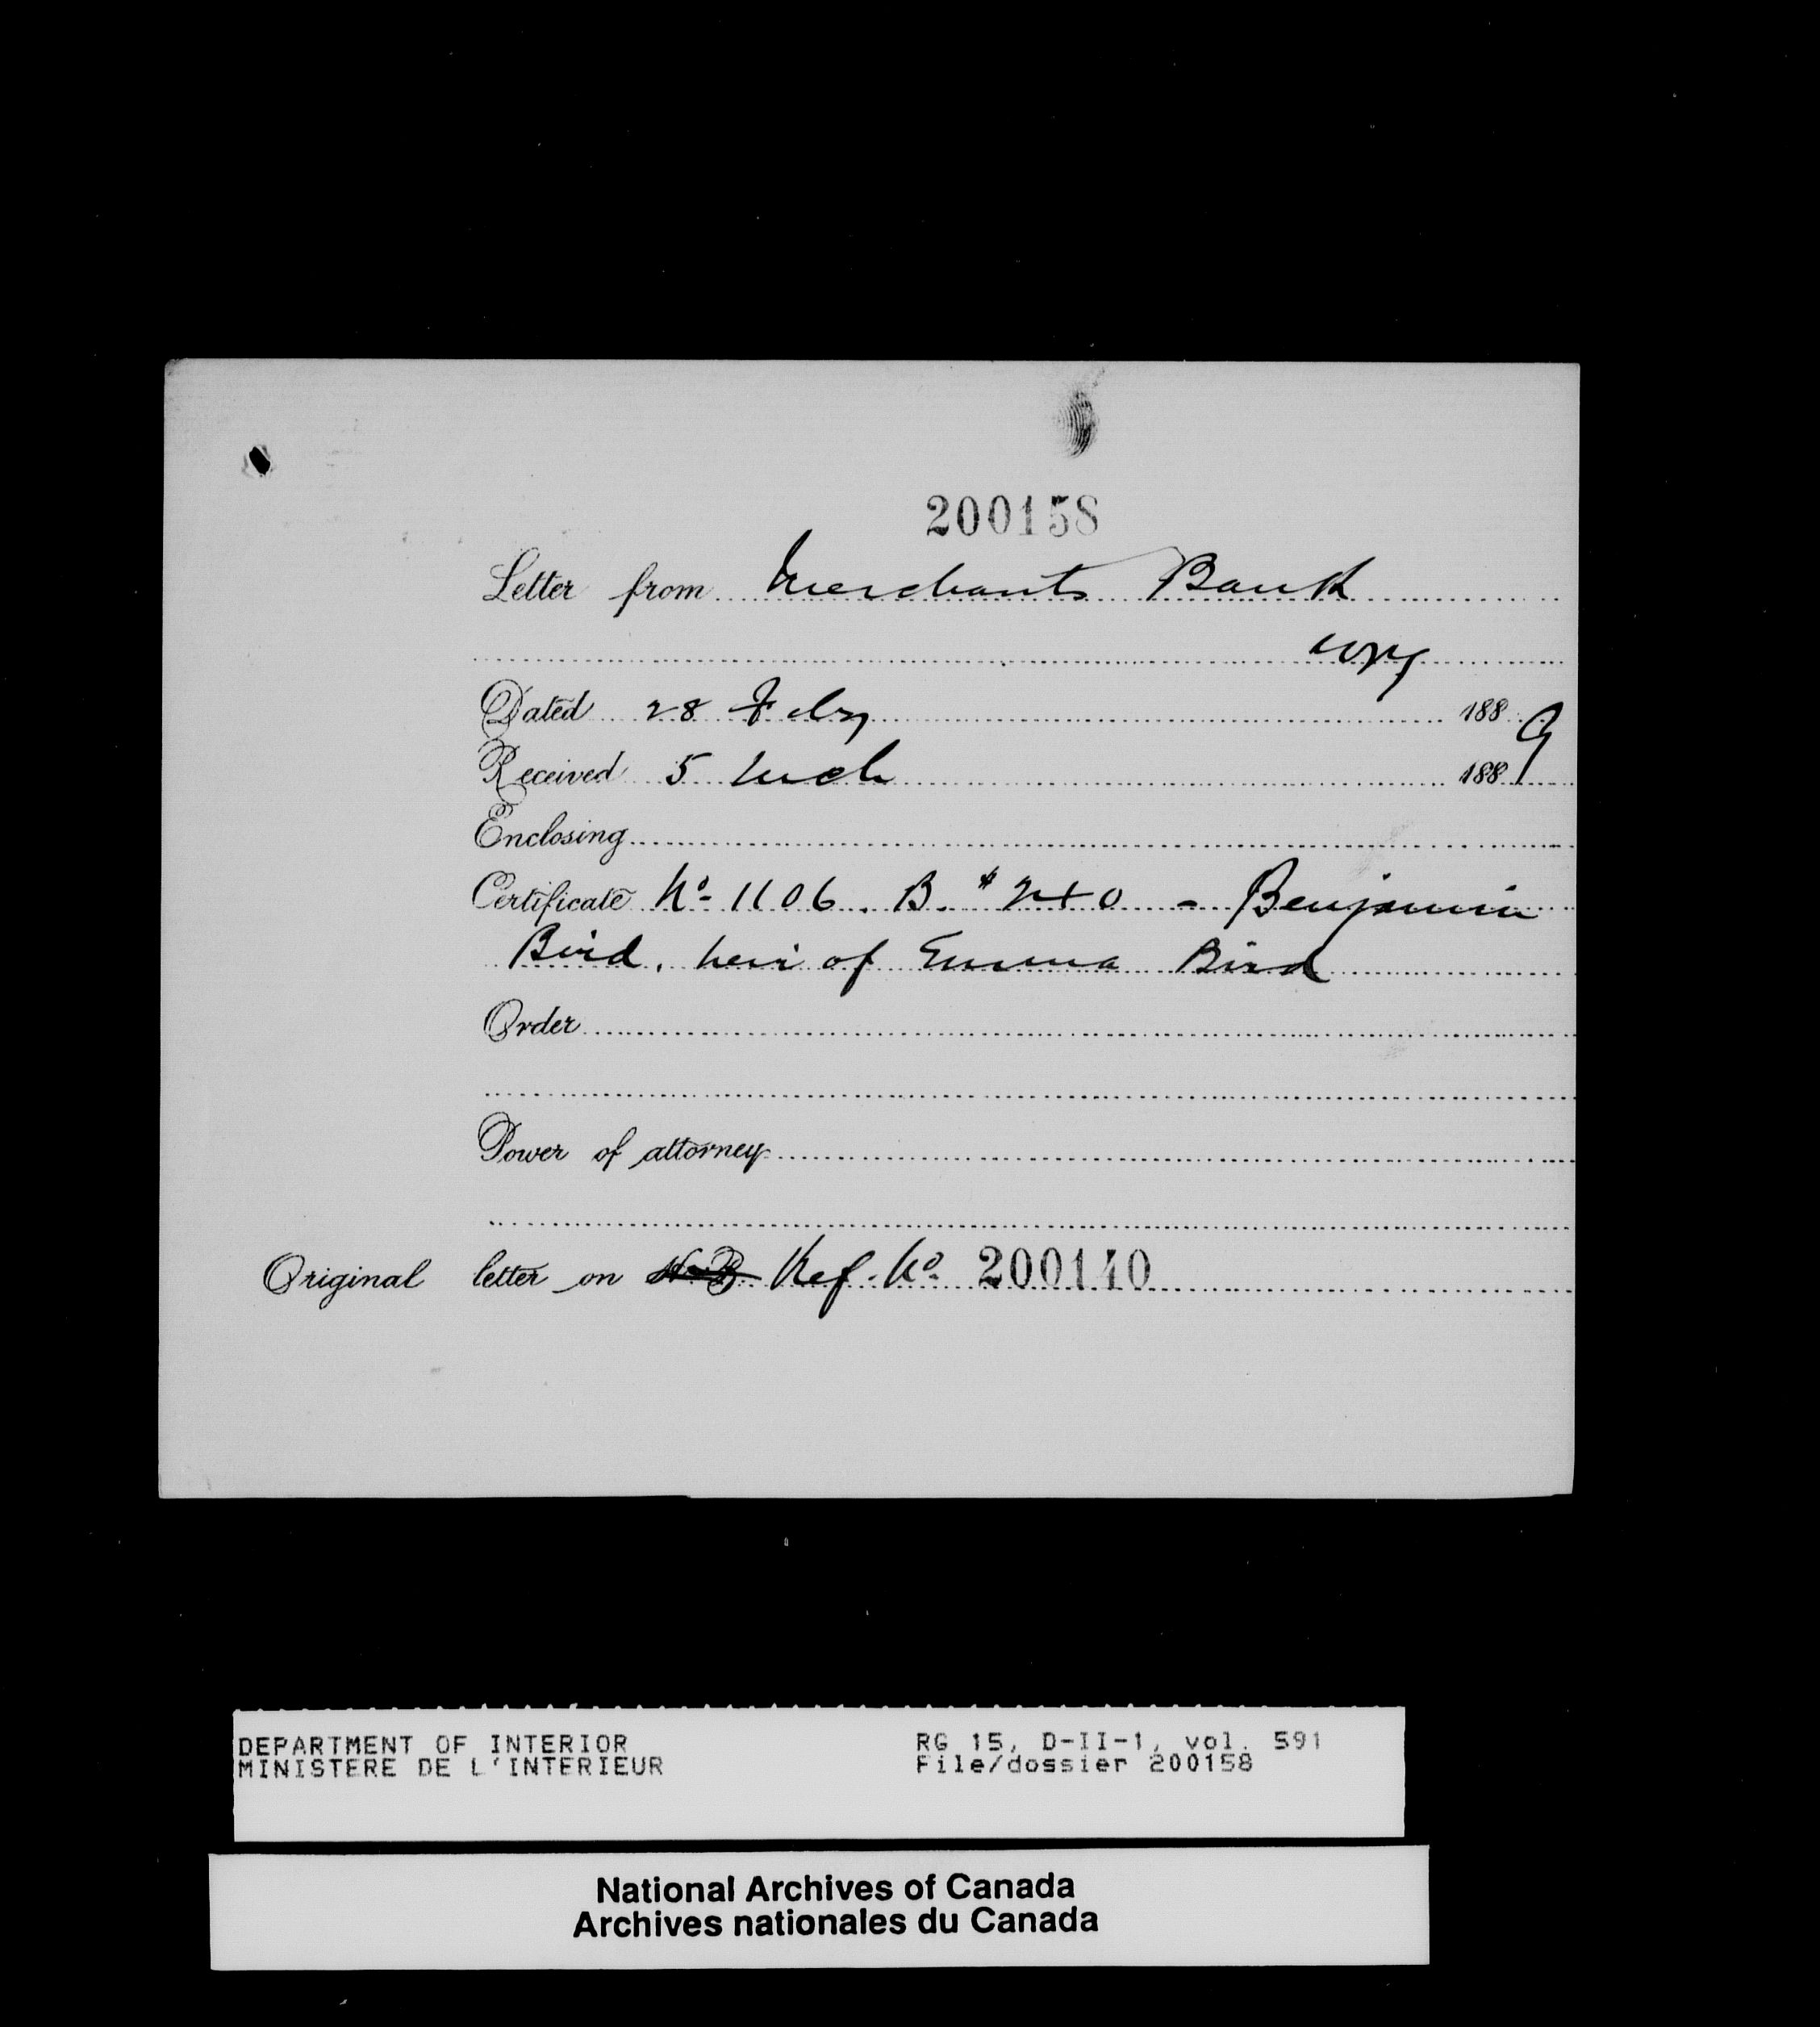 200158
Letter from Merchants Bank
copy
Dated 28 Feby 1889
Received 5 Mch 1889
Enclosing
Certificate No 1106. B. $240 - Benjamin
Bird, heir of Emma Bird
Order
Power of attorney
Original letter on Ref. No 200140
DEPARTMENT OF INTERIOR RG 15, D-II-1, vol. 591
MINISTERE DE L'INTERIEUR File/dossier 200158
National Archives of Canada
Archives nationales du Canada